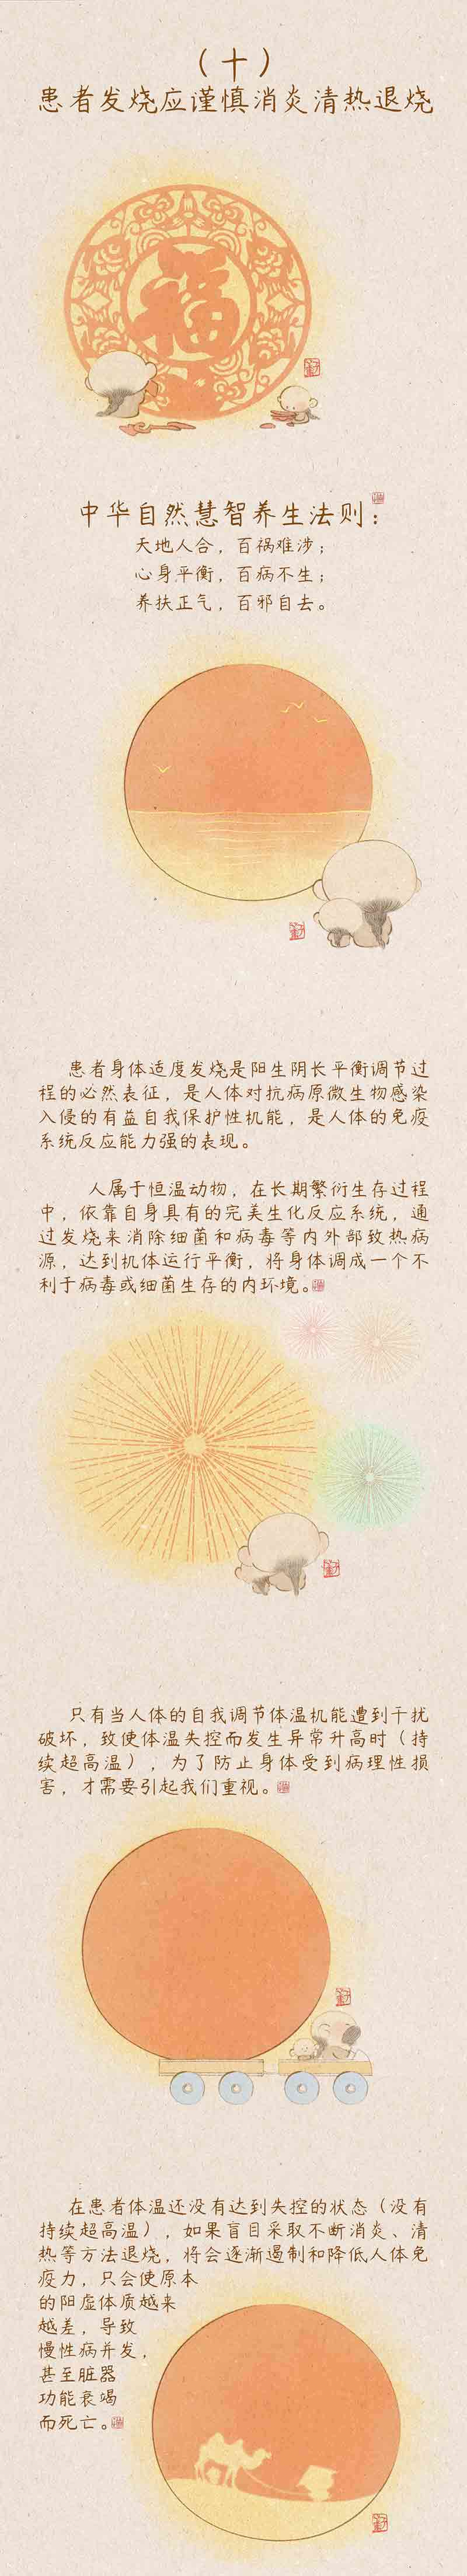 （十）
患者发烧应谨慎消炎清热退烧
福
中华自然慧智养生法则：
天地人合，百祸难涉；
心身平衡，百病不生；
养扶正气，百邪自去。
患者身体适度发烧是阳生阴长平衡调节过
程的必然表征，是人体对抗病原微生物感染
入侵的有益自我保护性机能，是人体的免疫
系统反应能力强的表现。
人属于恒温动物，在长期繁衍生存过程
中，依靠自身具有的完美生化反应系统，通
过发烧来消除细菌和病毒等内外部致热病
源，达到机体运行平衡，将身体调成一个不
利于病毒或细菌生存的内环境。
只有当人体的自我调节体温机能遭到干扰
破坏，致使体温失控而发生异常升高时（持
续超高温），为了防止身体受到病理性损
害，才需要引起我们重视。
在患者体温还没有达到失控的状态（没有
持续超高温），如果盲目采取不断消炎、清
热等方法退烧，将会逐渐遏制和降低人体免
疫力，只会使原本
的阳虚体质越来
越差，导致
慢性病并发，
甚至脏器
功能衰竭
而死亡。